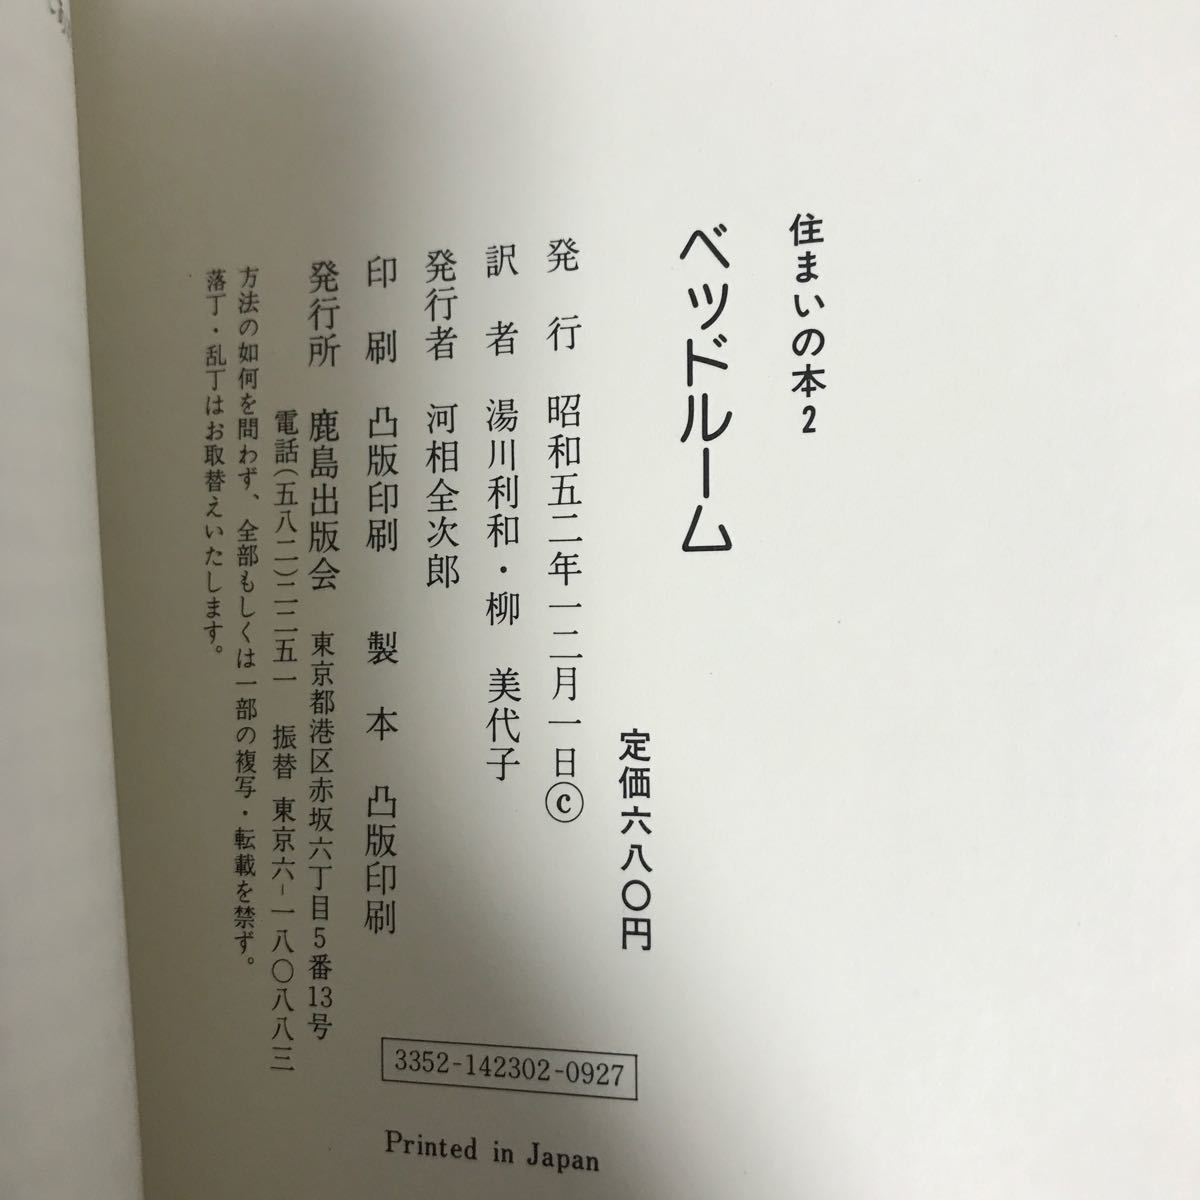 住まいの本2
ベッドルーム
定価六八〇円
発行 昭和五二年一二月一日ⓒ
訳者 湯川利和・柳 美代子
発行者 河相全次郎
印刷 凸版印刷 製本 凸版印刷
発行所 鹿島出版会 東京都港区赤坂六丁目5番13号
電話(五八二)二二五一 振替 東京六-一八〇八八三
方法の如何を問わず、全部もしくは一部の複写・転載を禁ず。
落丁・乱丁はお取替えいたします。
3352-142302-0927
Printed in Japan